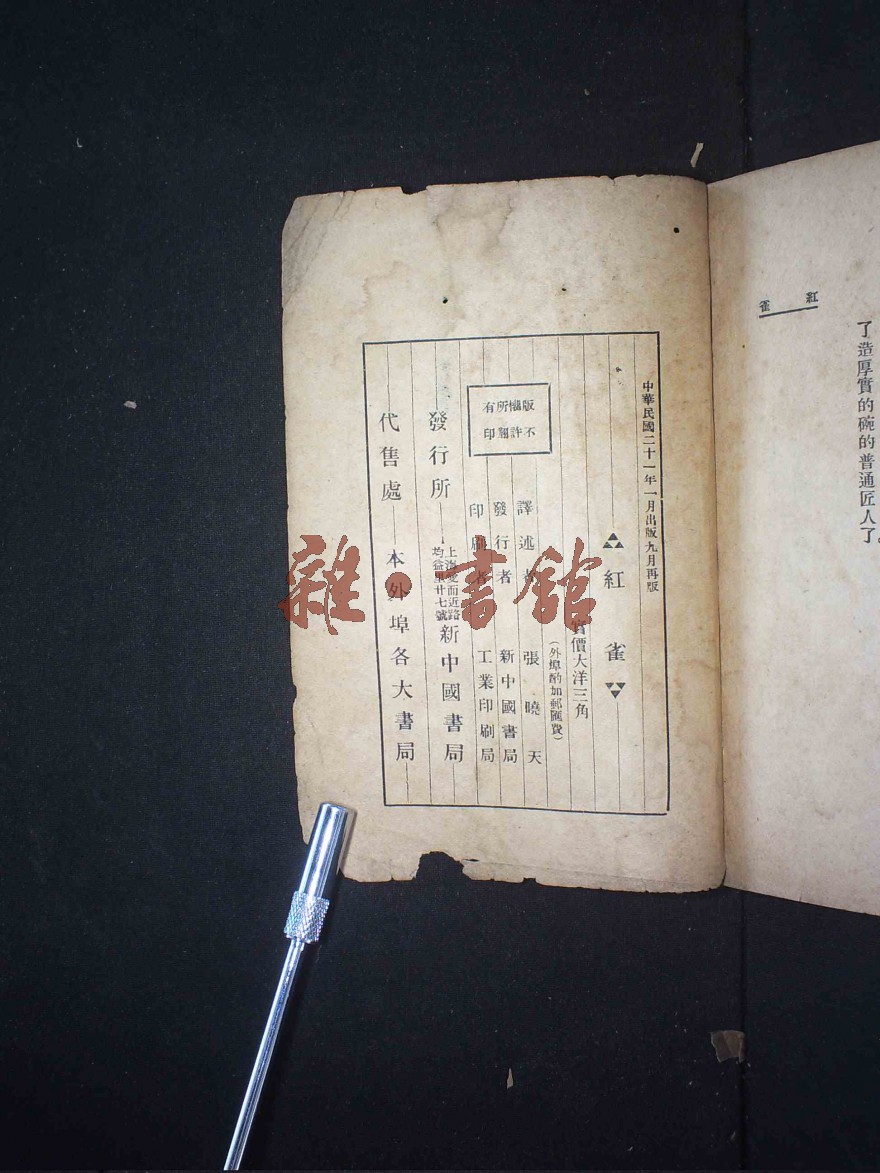 紅雀
了造厚實的碗的普通匠人了。
中華民國二十一年一月出版九月再版
紅雀
實價大洋三角
（外埠酌加郵匯費）
版權所有
不許翻印
譯述者 張曉天
發行者 新中國書局
印刷者 工業印刷局
發行所 上海愛而近路均益里廿七號 新中國書局
代售處 本外埠各大書局
雜·書館